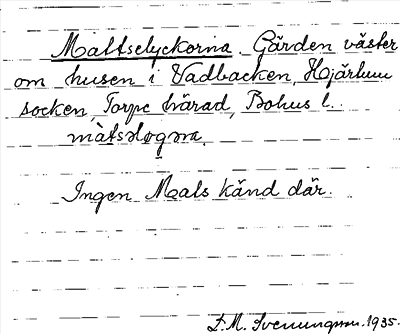 Maltselyckorna. Gärden väster
om husen i Vadbacken, Hjärtum
socken, Torpe härad, Bohus l.
màtsəlogɷna.
Ingen Mats känd där.
F. M. Svenungsson. 1935.